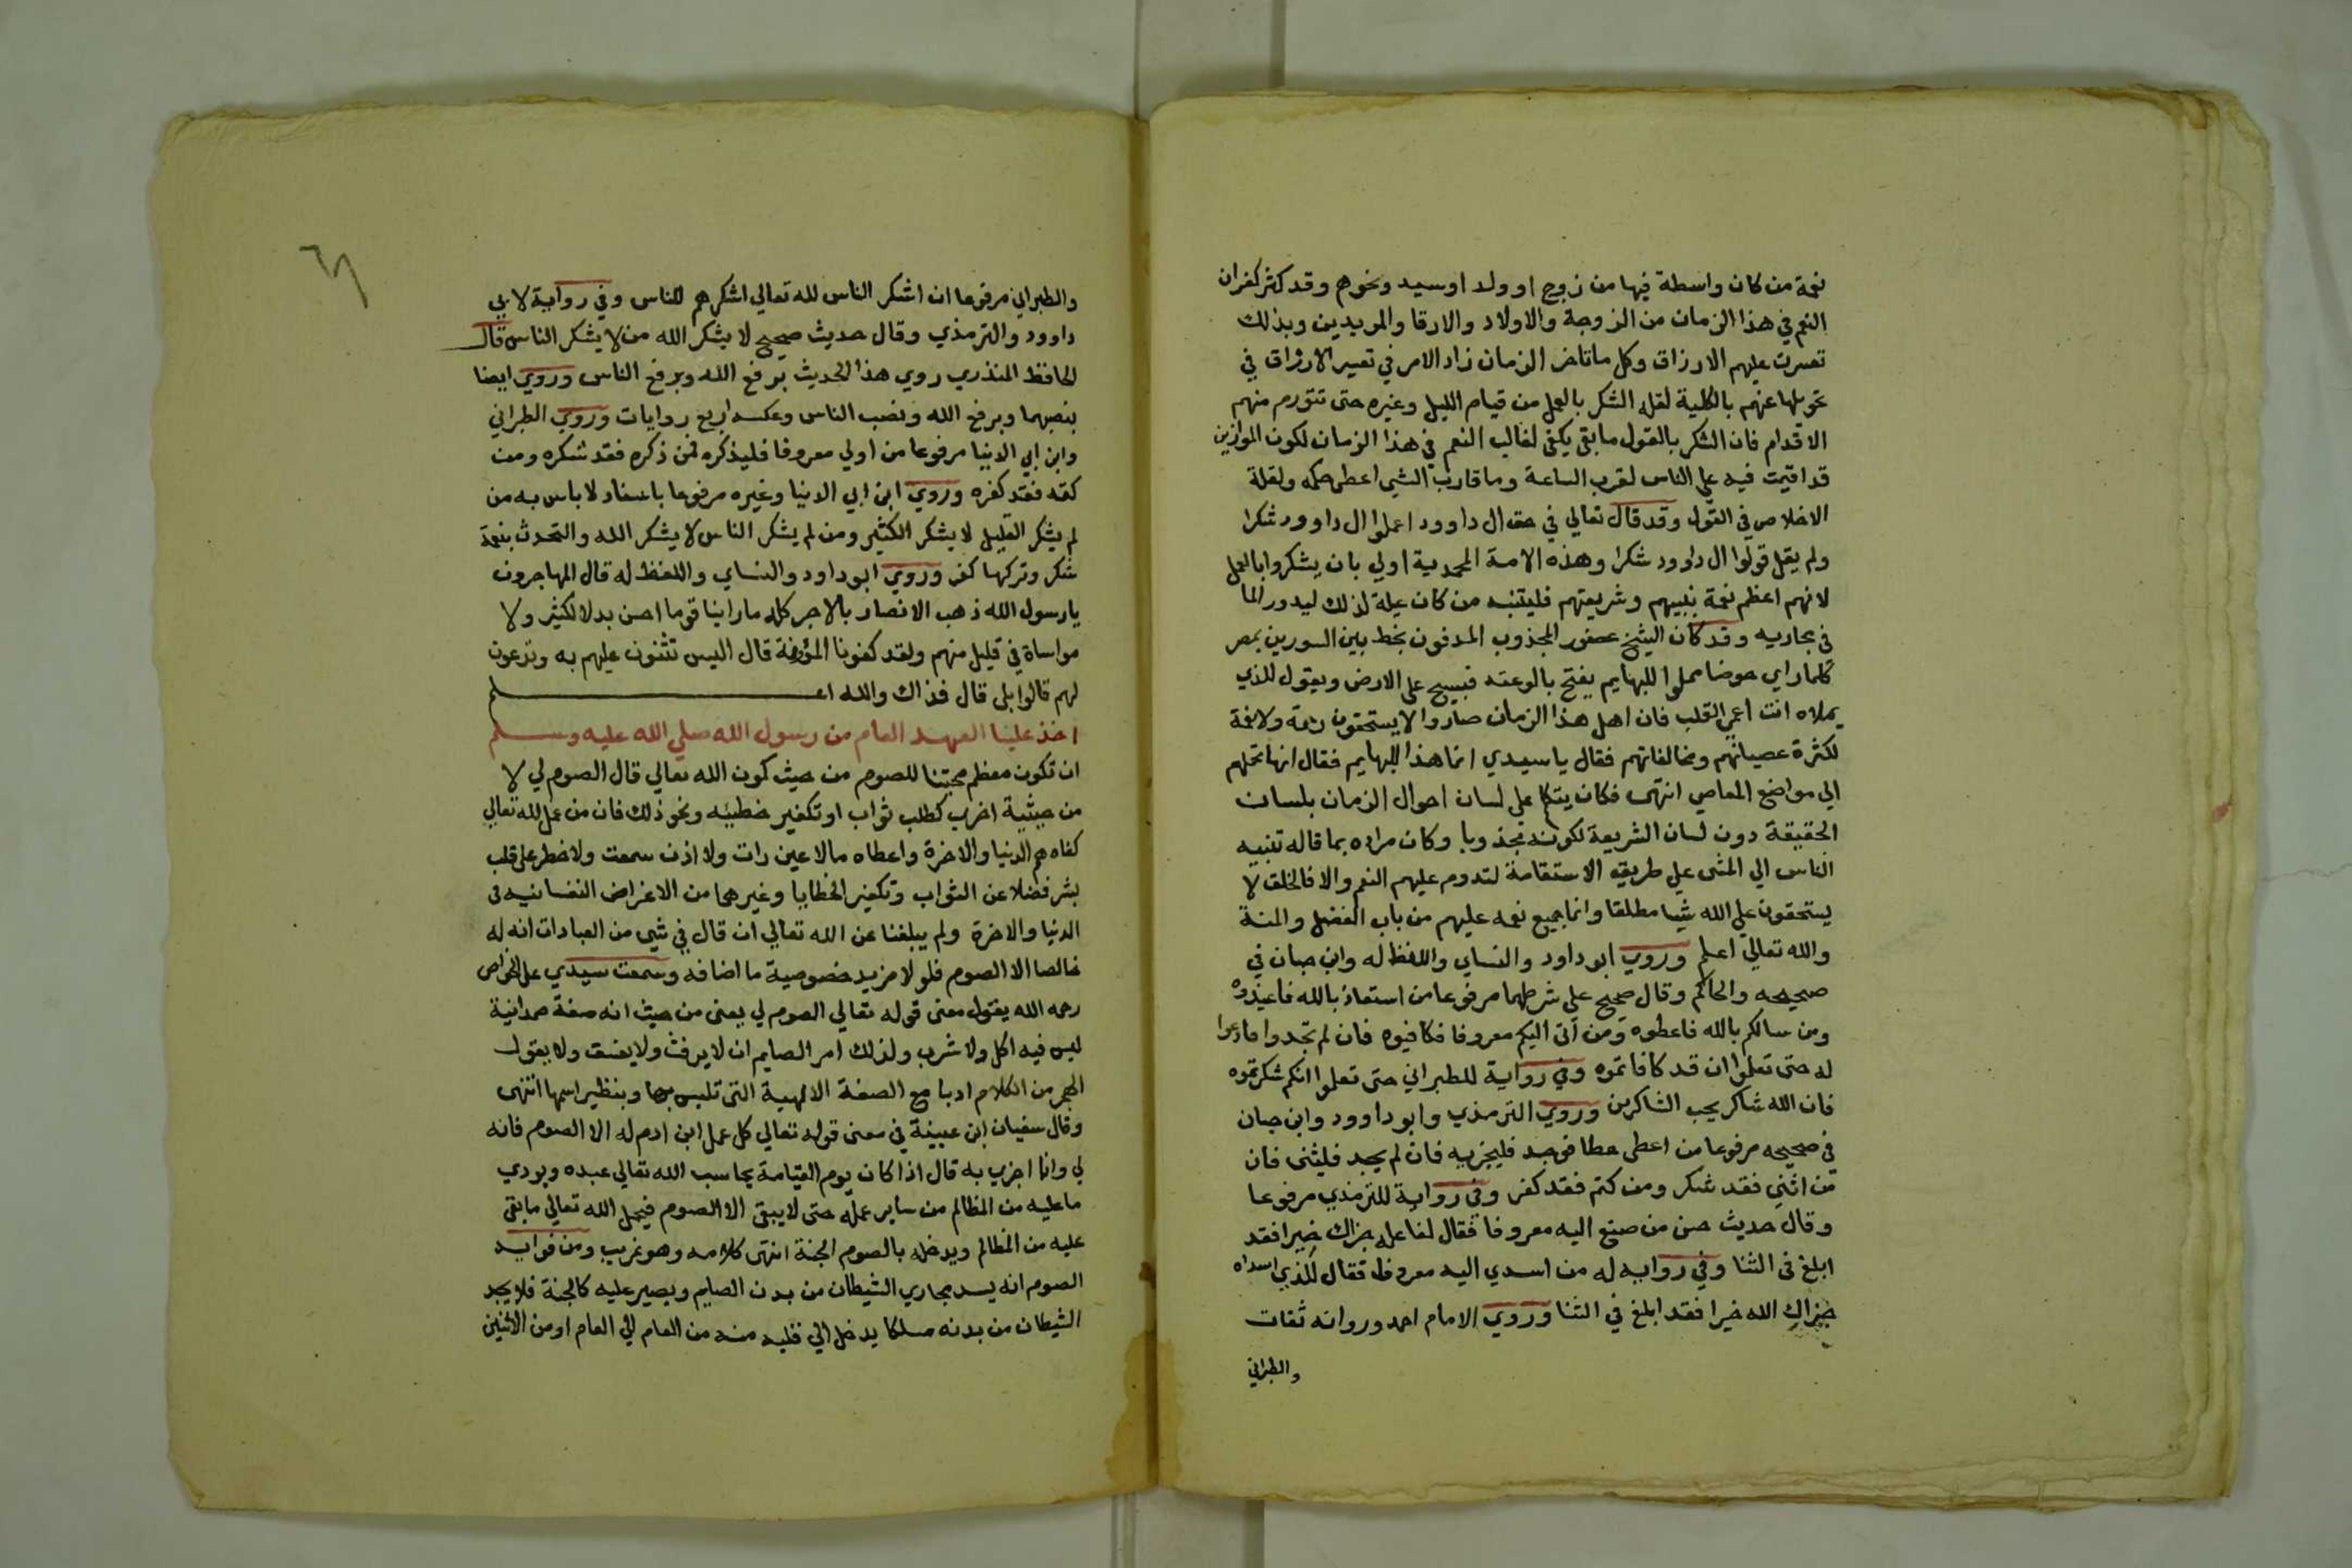 نعمة من كان واسطة فيها من زوج او ولد او سيد ونحوهم وقد كثر كفران
النعم في هذا الزمان من الزوجة والاولاد والارقا والمريدين وبذلك
تعسرت عليهم الارزاق وكل ماتاخر الزمان زاد الامر في تعسير الارزاق في
تحويلها عنهم بالكلية لقلة الشكر بالعمل من قيام الليل وغيره حتى تتورم منهم
الاقدام فان الشكر بالقول مابقى يكفى لغالب النعم في هذا الزمان لكون الموازين
قد اقيمت فيه علي الناس لقرب الساعة وما قارب الشي اعطى حكمه ولقلة
الاخلاص في القول وقد قال تعالي في حق ال داوود اعملوا ال داوود شكرا
ولم يقل قولوا ال داوود شكرا وهذه الامة المحمدية اولي بان يشكروا بالعمل
لانهم اعظم نعمة بنبيهم وشريعتهم فليتنبه من كان عيلة لذلك ليدور الما
في مجاريه وقد كان الشيخ عصفور المجذوب المدفون بخط بين السورين بمصر
كلما راي حوضا مملوا للبهايم يفتح بالوعته فيسيح على الارض ويقول للذي
يملاه انت اعمي القلب فان اهل هذا الزمان صاروا لا يستحقون رحمة ولا نعمة
لكثرة عصيانهم ومخالفاتهم فقال ياسيدي انما هذا للبهايم فقال انها تحملهم
الي مواضع المعاصي انتهى فكان يتكلم على لسان احوال الزمان بلسان
الحقيقة دون لسان الشريعة لكونه مجذوبا وكان مراده بما قاله تنبيه
الناس الي المشى علي طريق الاستقامة لتدوم عليهم النعم والا فالخلق لا
يستحقون علي الله شيا مطلقا وانما جميع نعمه عليهم من باب الفضل والمنة
والله تعالي اعلم وروي ابو داود والنساي واللفظ له وابن حبان في
صحيحه والحاكم وقال صحيح على شرطهما مرفوعا من استعاذ بالله فاعيذوه
ومن سالكم بالله فاعطوه ومن اتى اليكم معروفا فكافيوه فان لم تجدوا فادعوا
له حتى تعلموا ان قد كافاتموه وفي رواية للطبراني حتى تعلموا انكم شكرتموه
فان الله شاكر يحب الشاكرين وروي الترمذي وابو داوود وابن حبان
في صحيحه مرفوعا من اعطى عطا فوجد فليجز به فان لم يجد فليثنى فان
من اثني فقد شكر ومن كتم فقد كفر وفي رواية للترمذي مرفوعا
وقال حديث حسن من صنع اليه معروفا فقال لفاعله جزاك خيرا فقد
ابلغ في الثنا وفي رواية له من اسدي اليه معروفا فقال للذي اسداه
جزاك الله خيرا فقد ابلغ في الثنا وروي الامام احمد ورواته ثقات
والطبراني
٦٨
والطبراني مرفوعا ان اشكر الناس لله تعالي اشكرهم للناس وفي رواية لابي
داوود والترمذي وقال حديث صحيح لا يشكر الله من لا يشكر الناس قال
الحافظ المنذري روي هذا الحديث برفع الله وبرفع الناس وروي ايضا
بنصبهما وبرفع الله ونصب الناس وعكسه اربع روايات وروي الطبراني
وابن ابي الدنيا مرفوعا من اولي معروفا فليذكره فمن ذكره فقد شكره ومن
كتمه فقد كفره وروي ابن ابي الدنيا وغيره مرفوعا باسناد لا باس به من
لم يشكر القليل لا يشكر الكثير ومن لم يشكر الناس لا يشكر الله والتحدث بنعمة
شكر وتركها كفر وروي ابو داود والنساي واللفظ له قال المهاجرون
يارسول الله ذهب الانصار بالاجر كله ماراينا قوما احسن بدلا لكثير ولا
مواساة في قليل منهم ولقد كفونا المؤنة قال اليس تثنون عليهم به وتدعون
لهم قالوا بلى قال فذاك والله اعلم
اخذ علينا العهد العام من رسول الله صلي الله عليه وسلم
ان تكون معظم محبتنا للصوم من حيث كون الله تعالي قال الصوم لي لا
من حيثية اخرى كطلب ثواب او تكفير خطيئه ونحو ذلك فان من عمل لله تعالي
كفاه هم الدنيا والاخرة واعطاه مالا عين رات ولا اذن سمعت ولا خطر على قلب
بشر فضلا عن الثواب وتكفير الخطايا وغيرهما من الاغراض النفسانيه في
الدنيا والاخرة ولم يبلغنا عن الله تعالي ان قال في شي من العبادات انه له
خالصا الا الصوم فلولا مزيد خصوصية ما اضافه وسمعت سيدي على الخواص
رحمه الله يقول معنى قوله تعالي الصوم لي يعنى من حيث انه صفة صمدانية
ليس فيه اكل ولا شرب ولذلك امر الصايم ان لا يرفث ولا يفسق ولا يقول
الهجر من الكلام ادبا مع الصفة الالهية التى تلبس بها وبنظير اسمها انتهى
وقال سفيان ابن عيينة في معنى قوله تعالي كل عمل ابن ادم له الا الصوم فانه
لي وانا اجزي به قال اذا كان يوم القيامة يحاسب الله تعالي عبده ويودي
ما عليه من المظالم من ساير عمله حتى لا يبقى الا الصوم فيحمل الله تعالي ما بقى
عليه من المظالم ويدخله بالصوم الجنة انتهى كلامه وهو غريب ومن فوايد
الصوم انه يسد مجاري الشيطان من بدن الصايم ويصير عليه كالجنة فلا يجد
الشيطان من بدنه مسلكا يدخل الي قلبه منه من العام الي العام او من الاثنين